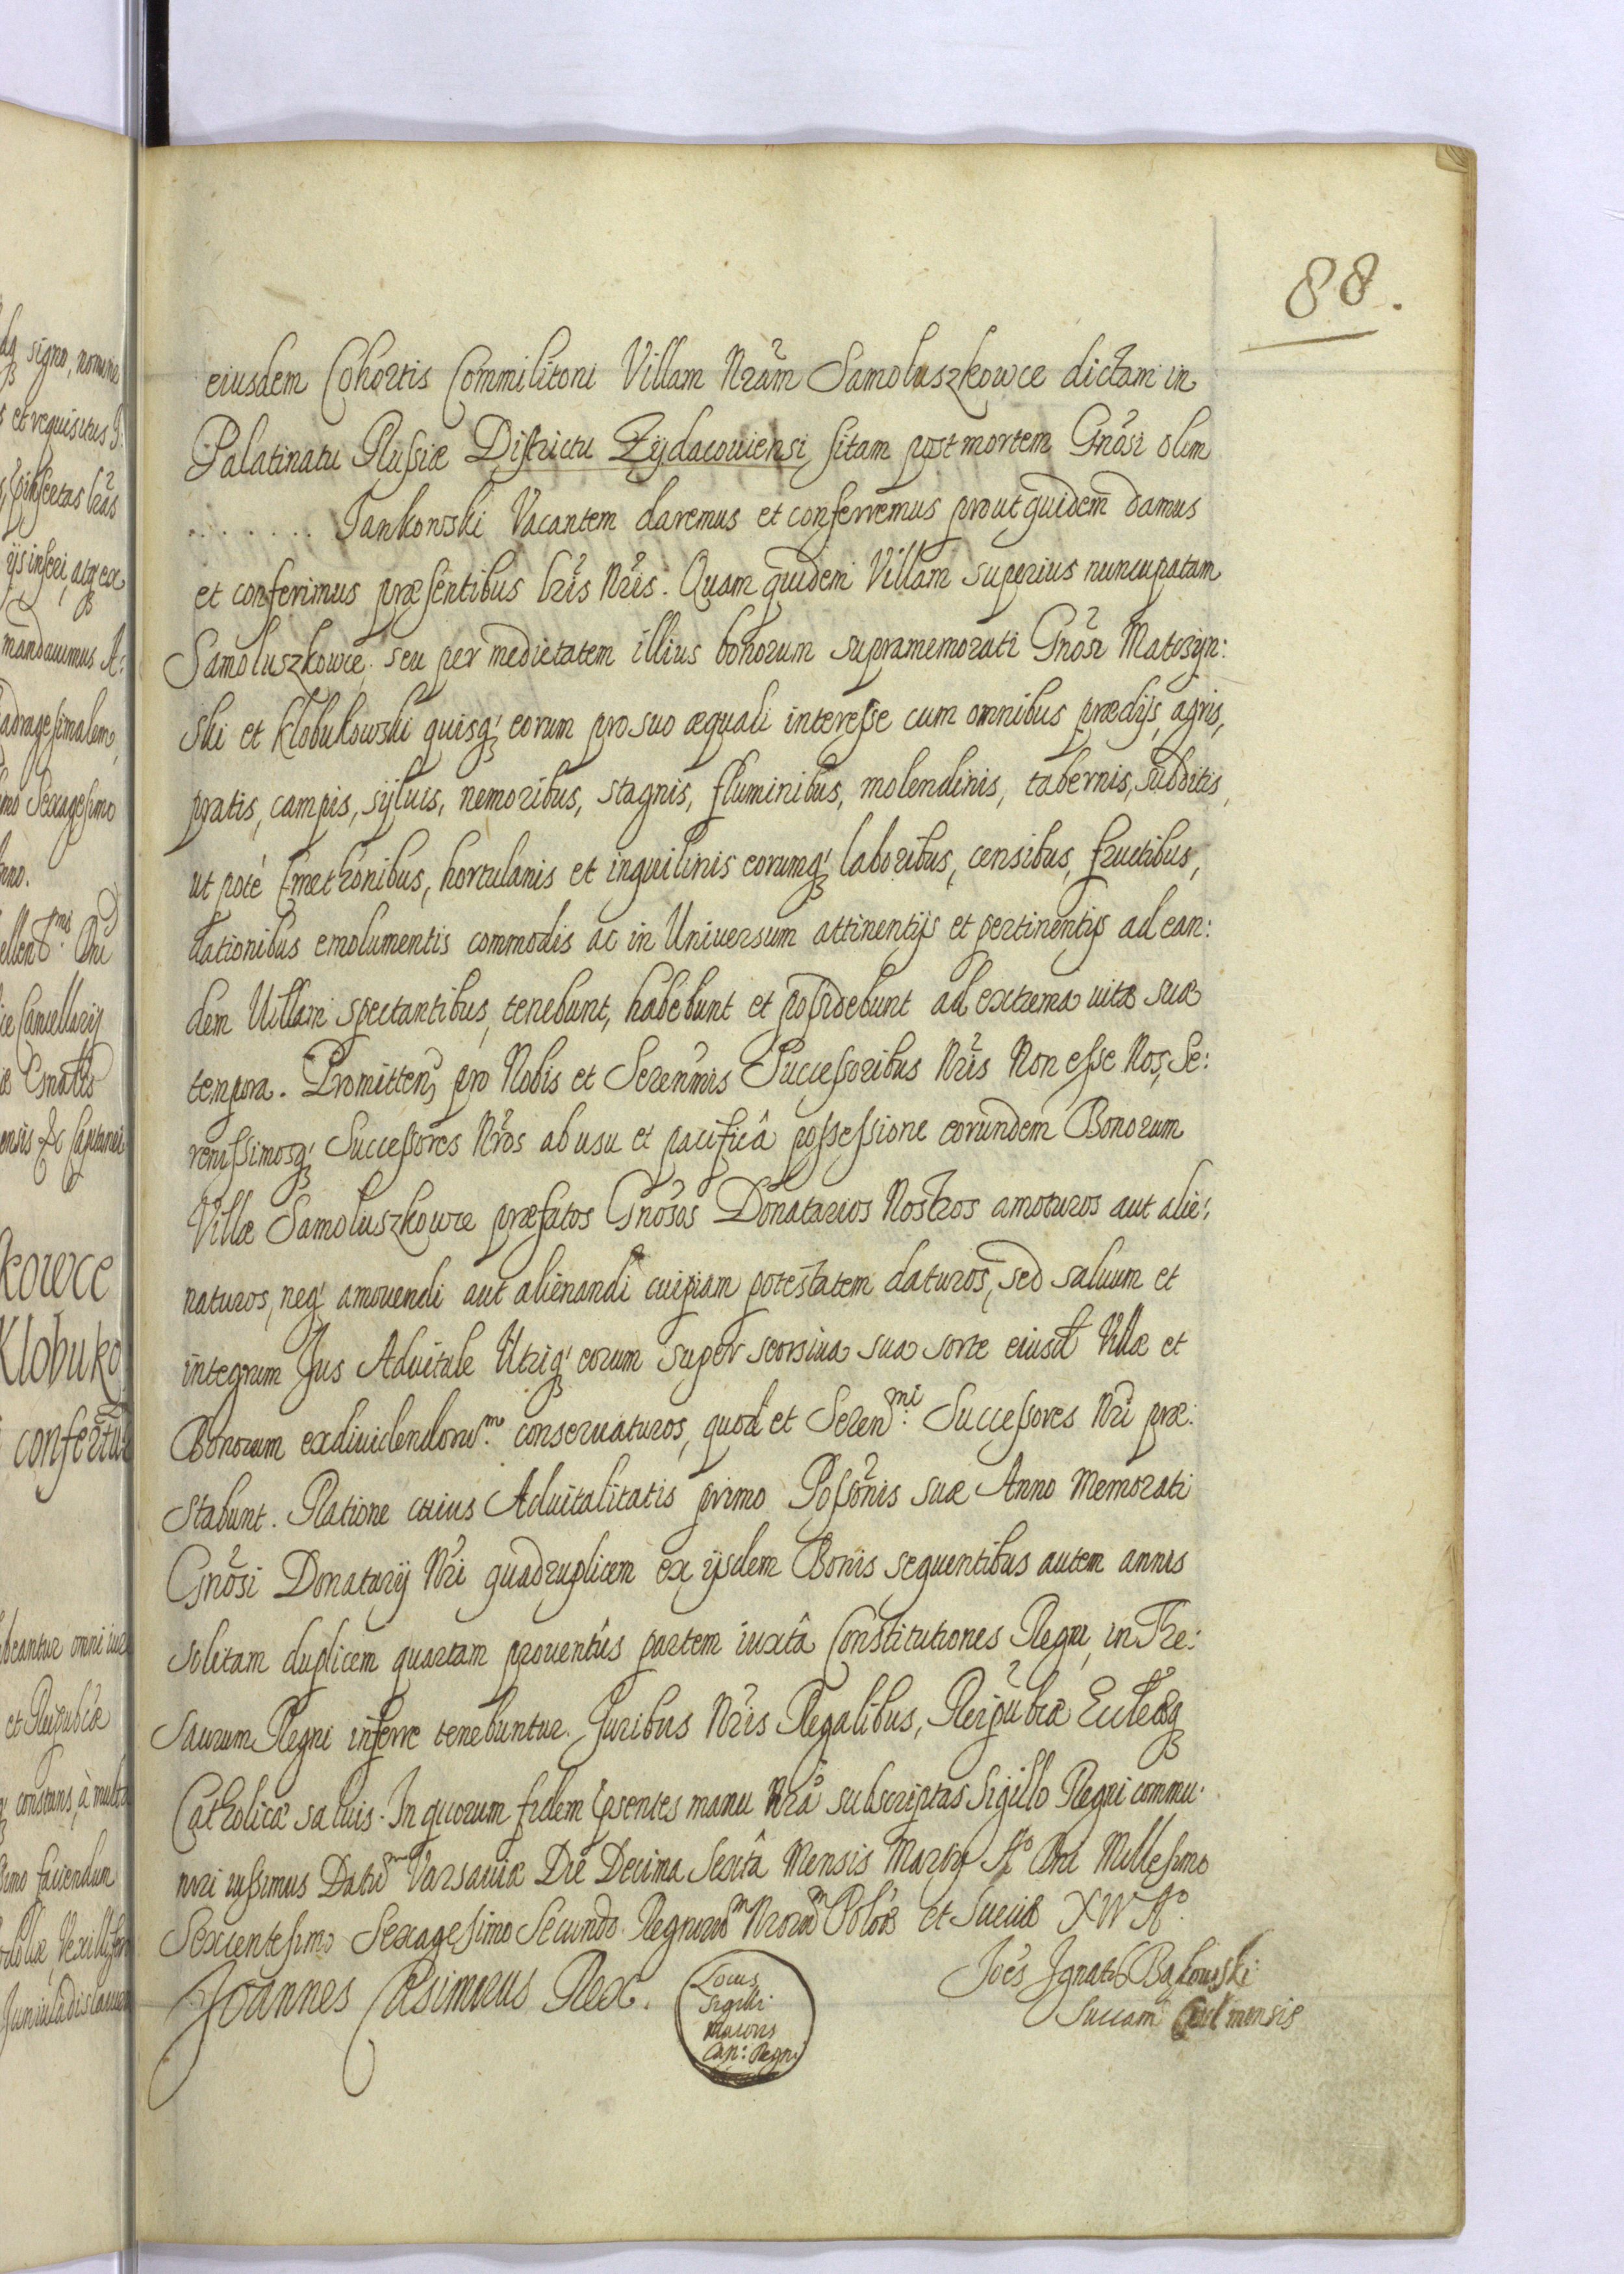 88.
eiusdem Cohortis Commilitoni Villam Nrãm Samoluszkowce dictam in
Palatinatu Russiæ Districtu Zÿdacouiensi sitam post mortem Gnõsi olim
........ Jankowski Vacantem daremus et conferremus prout quidem damus
et conferimus præsentibus lrĩs Nrĩs. Quam quidem Villam superius nuncupatam
Samoluszkowce, seu per medietatem illius bonorum supramemorati Gnõsi Matozyn:
ski et Klobukowski quisq; eorum pro suo æquali interesse cum omnibus prædijs, agris,
pratis, campis, syluis, nemoribus, stagnis, fluminibus, molendinis, tabernis, subditis,
ut poté Cmethonibus, hortulanis et inquilinis eorumq; laboribus, censibus, fructibus,
dationibus emolumentis commodis ac in Uniuersum attinentijs et pertinentijs ad ean:
dem Uillam spectantibus, tenebunt, habebunt et possidebunt ad extrema uitæ suæ
tempora. Promitten, pro Nobis et Serenmis Successoribus Nrĩs Non esse Nos, Se:
renissimosq; Successores Nrõs ab usu et pacificâ possessione eorundem Bonorum
Villæ Samoluszkowce præfatos Gnõsos Donatarios Nostros amoturos aut alie:
naturos, neq; amouendi aut alienandi cuipiam potestatem daturos, sed saluum et
integrum Jus Aduitale Utriq; eorum super seorsiua sua sorte eiusd Villæ et
Bonorum exdiuidendoru.m conseruaturos, quod et Seren.mi Successores Nri præ:
stabunt. Ratione cuius Aduitalitatis primo Possõnis suæ Anno Memorati
Gnõsi Donatarij Nri quadruplicem ex ijsdem Bonis sequentibus autem annis
solitam duplicem quartam prouentûs partem iuxtâ Constitutiones Regni, in The:
saurum Regni inferre tenebuntur. Juribus Nrĩs Regalibus, Reipublæ Ecclæq;
Catholicæ saluis. In quorum fidem pñsentes manu Nrã subscriptas Sigillo Regni commu:
niri iussimus Datu.m Varsauiæ Die Decima Sextâ Mensis Martij Aº Dni Millesimo
Sexcentesimo Sexagesimo Secundo. Regnoru.m Nroru.m Polõæ et Sueciæ XIV Aº.
Joannes Casimirus Rex.
Locus
Sigilli
Maioris
Can: Regni
Joẽs Ignat Bąkowski
Succam Culmensis